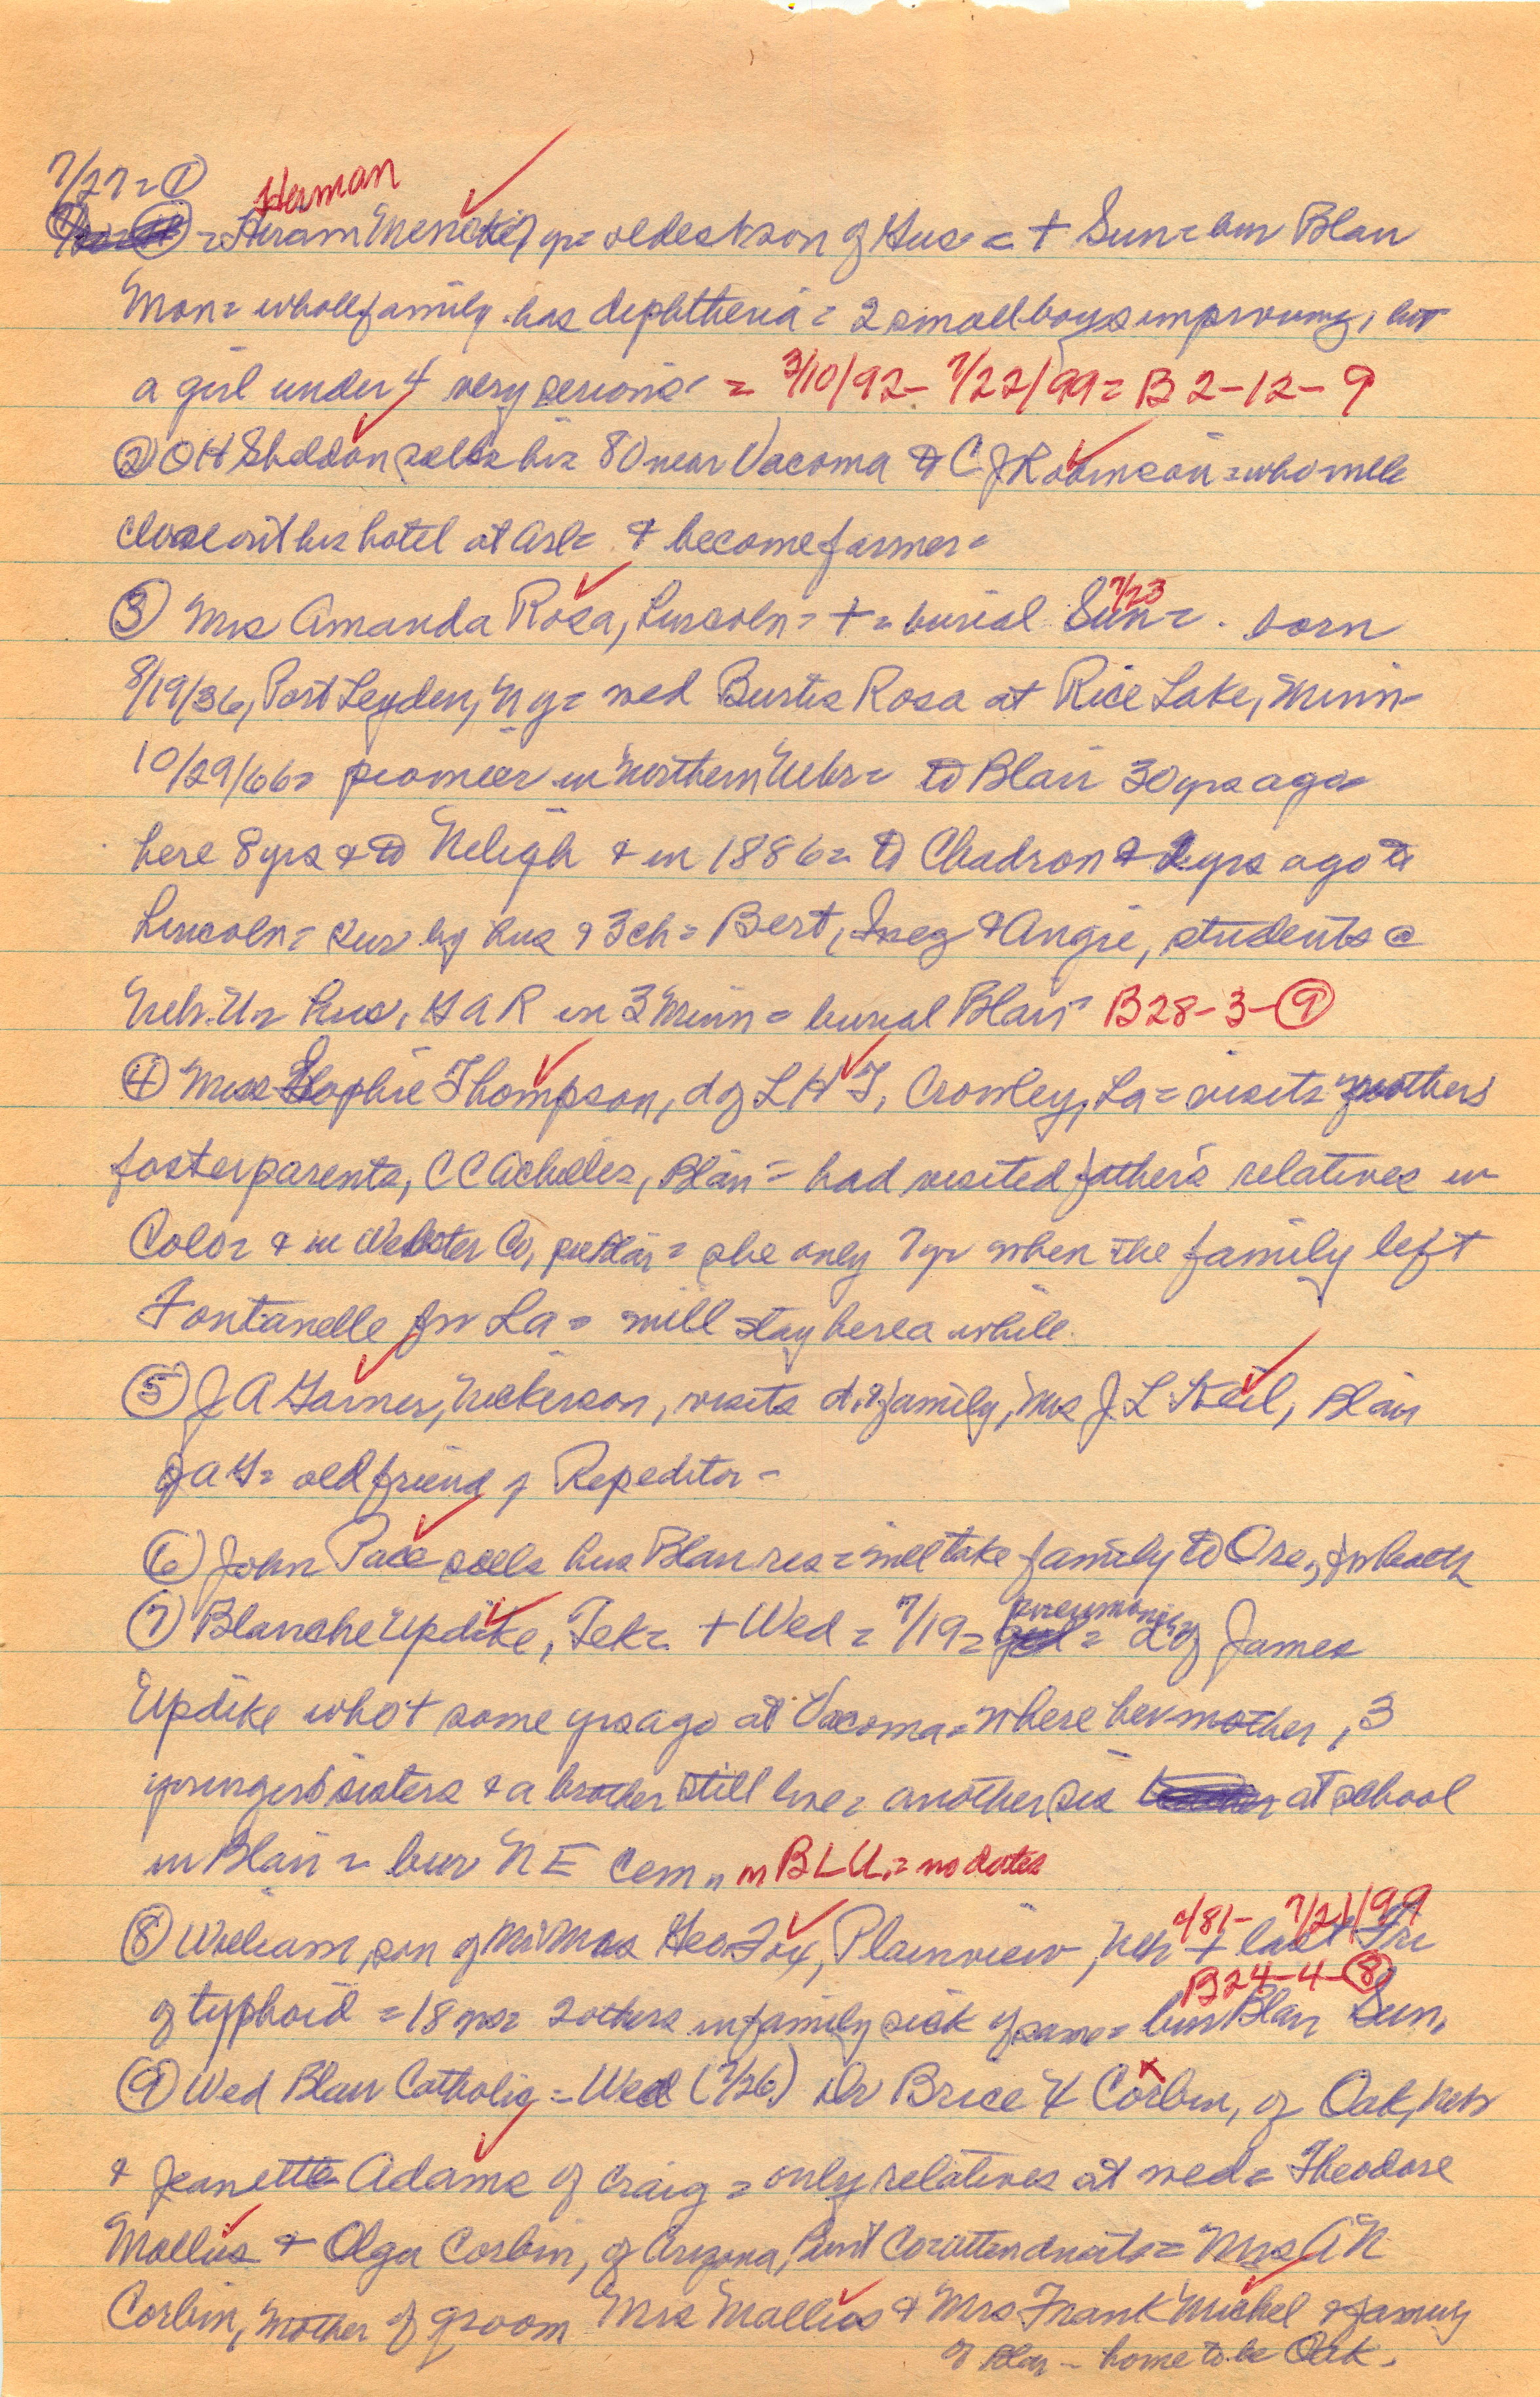 7/27 = ①
Herman
= Hiram Mencke, 7 yr = oldest son of Gus = + Sun = bur Blair
Mon = whole family has diphtheria = 2 small boys improving, but
a girl under 4 very serious = 3/10/92 - 7/22/99 = B 2-12-9
② O H Sheldon sells his 80 near Vacoma to C J Robinson = who will
close out his hotel at Arl = & become farmer =
7/23
③ Mrs Amanda Rosa, Lincoln = + = burial Sun = . born
8/19/36, Port Leyden, N Y = wed Burtis Rosa at Rice Lake, Minn -
10/29/66 = pioneer in Northern Nebr = to Blair 30 yrs ago =
here 8 yrs & to Neligh & in 1886 = to Chadron & 2 yrs ago to
Lincoln = sur by hus & 3 ch = Bert, Inez & Angie, students @
Neb. U = hus, G A R in 3 Minn = burial Blair = B28-3-⑨
④ Miss Sophie Thompson, d of L H T, Crowley, La = visits mothers
foster parents, C C Achilles, Blair = had visited fathers relatives in
Colo = & in Webster Co, = she only 7 yr when the family left
Fontanelle for La = will stay here a while.
⑤ J A Garner, Nickerson, visits d. & family, Mrs J L Keil, Blair
J A G = old friend of Rep editor -
⑥ John Pace sells his Blair res = will take family to Ore, for health
pneumonia
⑦ Blanche Updike, Tek = + Wed = 7/19 = = d of James
Updike who + some yrs ago at Vacoma = where her mother, 3
younger sisters & a brother still live = another sis at school
in Blair = bur N E Cem, in B L U, = no dates
4/81 - 7/21/99
⑧ William, son of Mr Mrs Geo Fox, Plainview, Neb + last Fri
B24-4-⑧
of typhoid = 18 yrs = 2 others in family sick of same = bur Blair Sun,
⑨ Wed Blair Catholic = Wed (7/26) Dr Brice H Corbin, of Oak, Neb
& Jeanette Adams of Craig = only relatives at wed = Theodore
Mallius & Olga Corbin, of Arizona, Co attendants = Mrs A N
Corbin, mother of groom Mrs Mallius & Mrs Frank Michel & family
of Blair - home to be Oak.